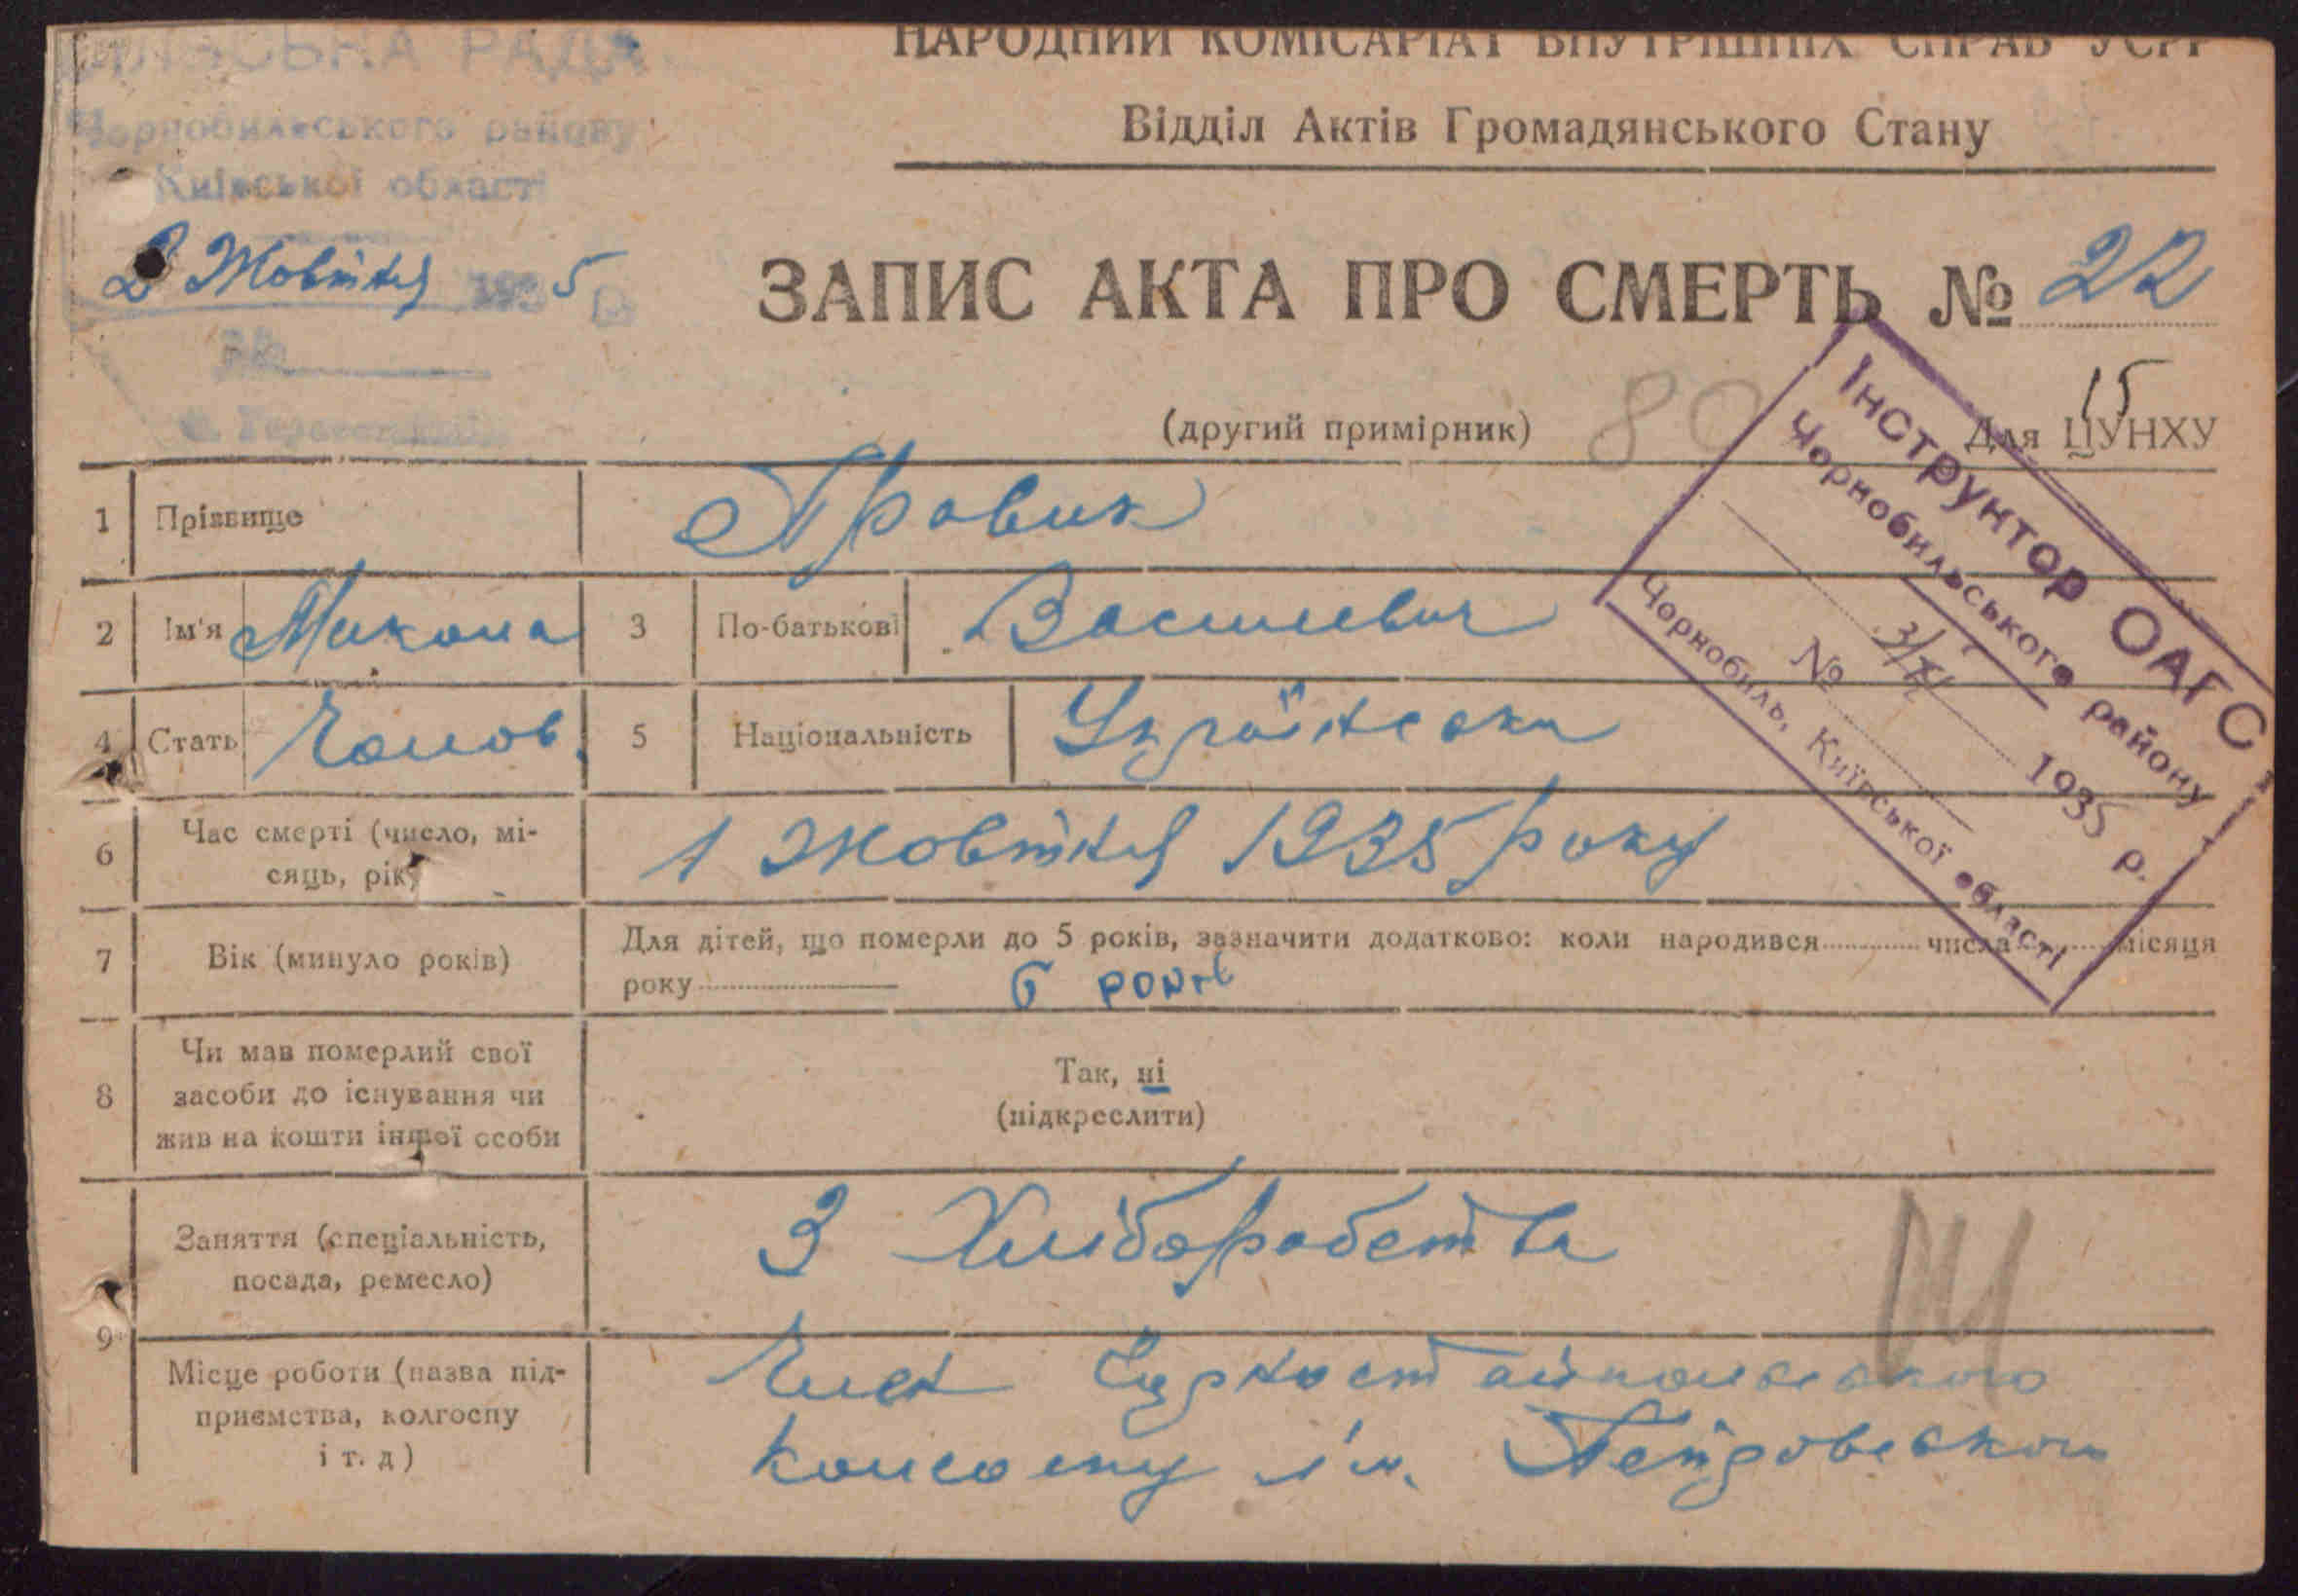 РАДА
Чорнобильського району
Київської області
2 Жовтня 1935 р.
НАРОДНИЙ КОМІСАРІАТ ВНУТРІШНІХ СПРАВ УСРР
Відділ Актів Громадянського Стану
ЗАПИС АКТА ПРО СМЕРТЬ № 22
(другий примірник) 80 Для ЦУНХУ
15
Інструктор ОАГС
Чорнобильського району
3/XI 1935 р.
№
Чорнобиль, Київської області
1 Прізвище Правик
2 Ім'я Микола 3 По-батькові Василевич
4 Стать Чолов. 5 Національність
6 Час смерті (число, мі-
сяць, рік) 1 Жовтня 1935 року
7 Вік (минуло років) Для дітей, що померли до 5 років, зазначити додатково: коли народився числа місяця
року 6 років
8 Чи мав померлий свої
засоби до існування чи
жив на кошти іншої особи
Так, ні
(підкреслити)
9 Заняття (спеціальність,
посада, ремесло) З Хліборобства
Місце роботи (назва під-
приємства, колгоспу
і т. д)
Член
колгоспу ім. Петровського